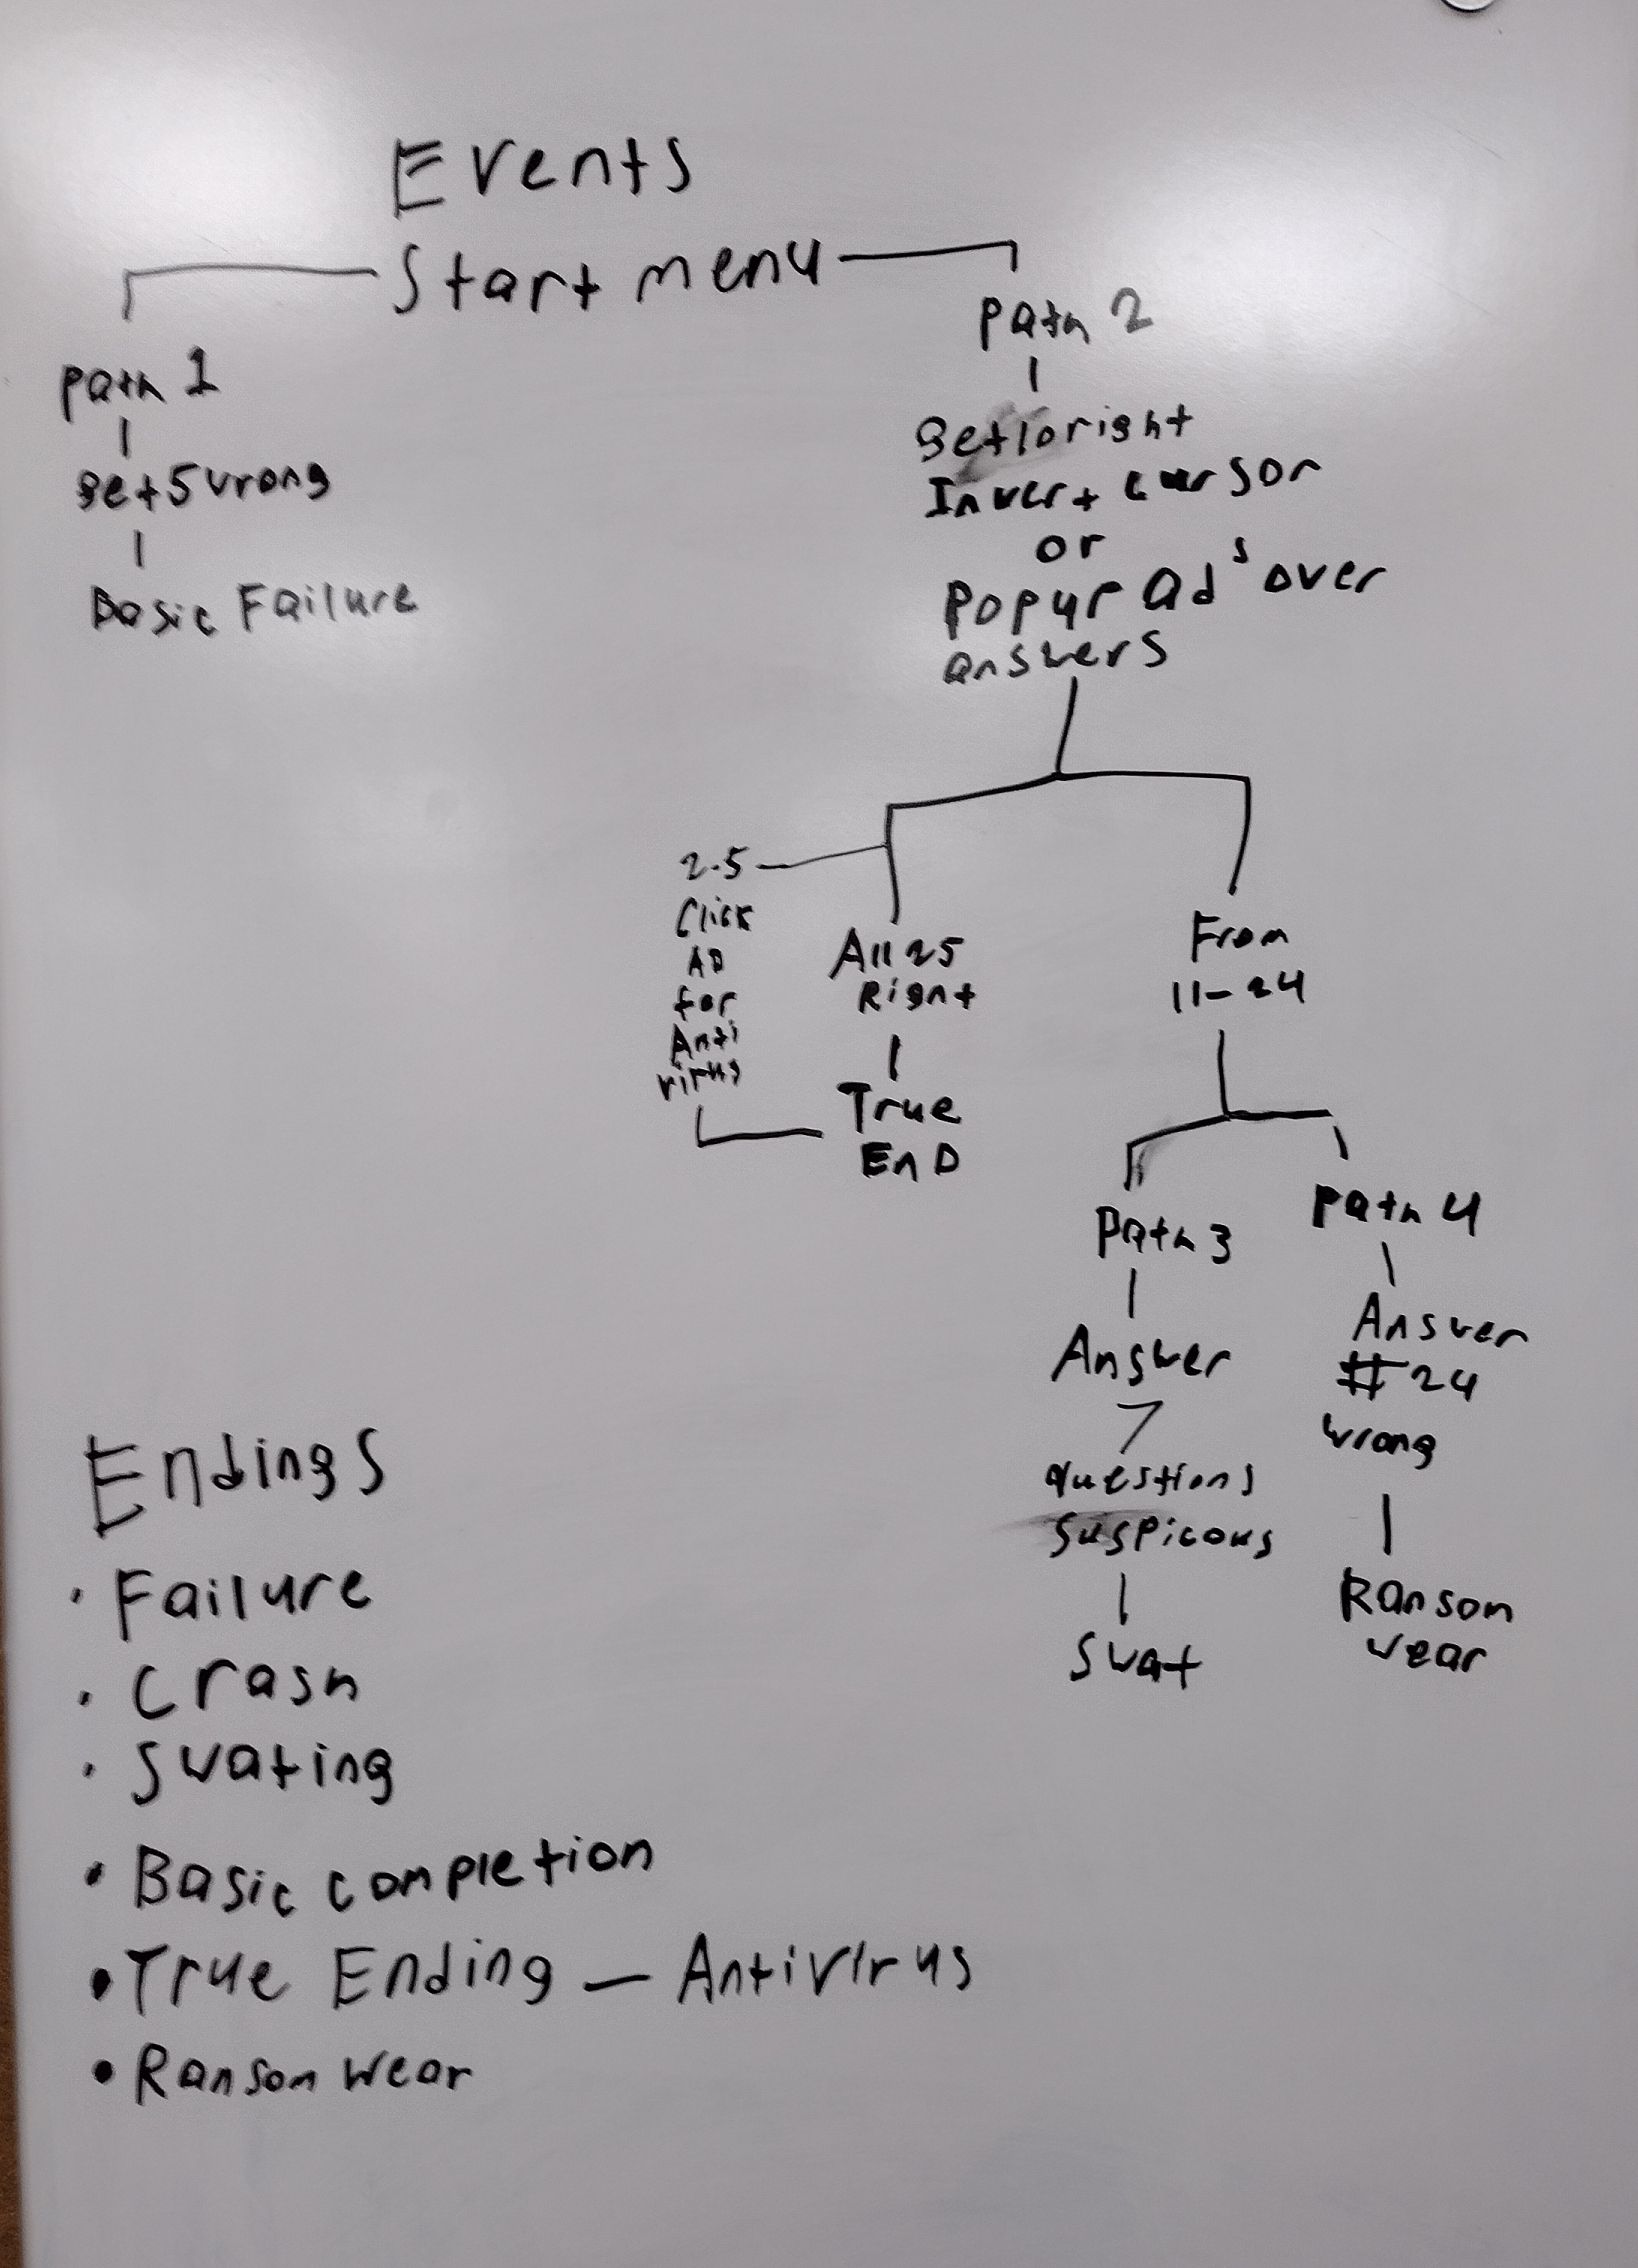 Events
Start menu
Path 1
get 5 wrong
Basic Failure
Path 2
get 10 right
Invert cursor
or
Popup ad's over
answers
2-5
Click
AD
for
Anti
virus
All 25
Right
True
EnD
From
11-24
Path 3
Answer
7
questions
suspicous
Swat
Path 4
Answer
#24
wrong
Ransom
wear
Endings
• Failure
• crash
• Swating
• Basic completion
• True Ending — Antivirus
• Ransom wear